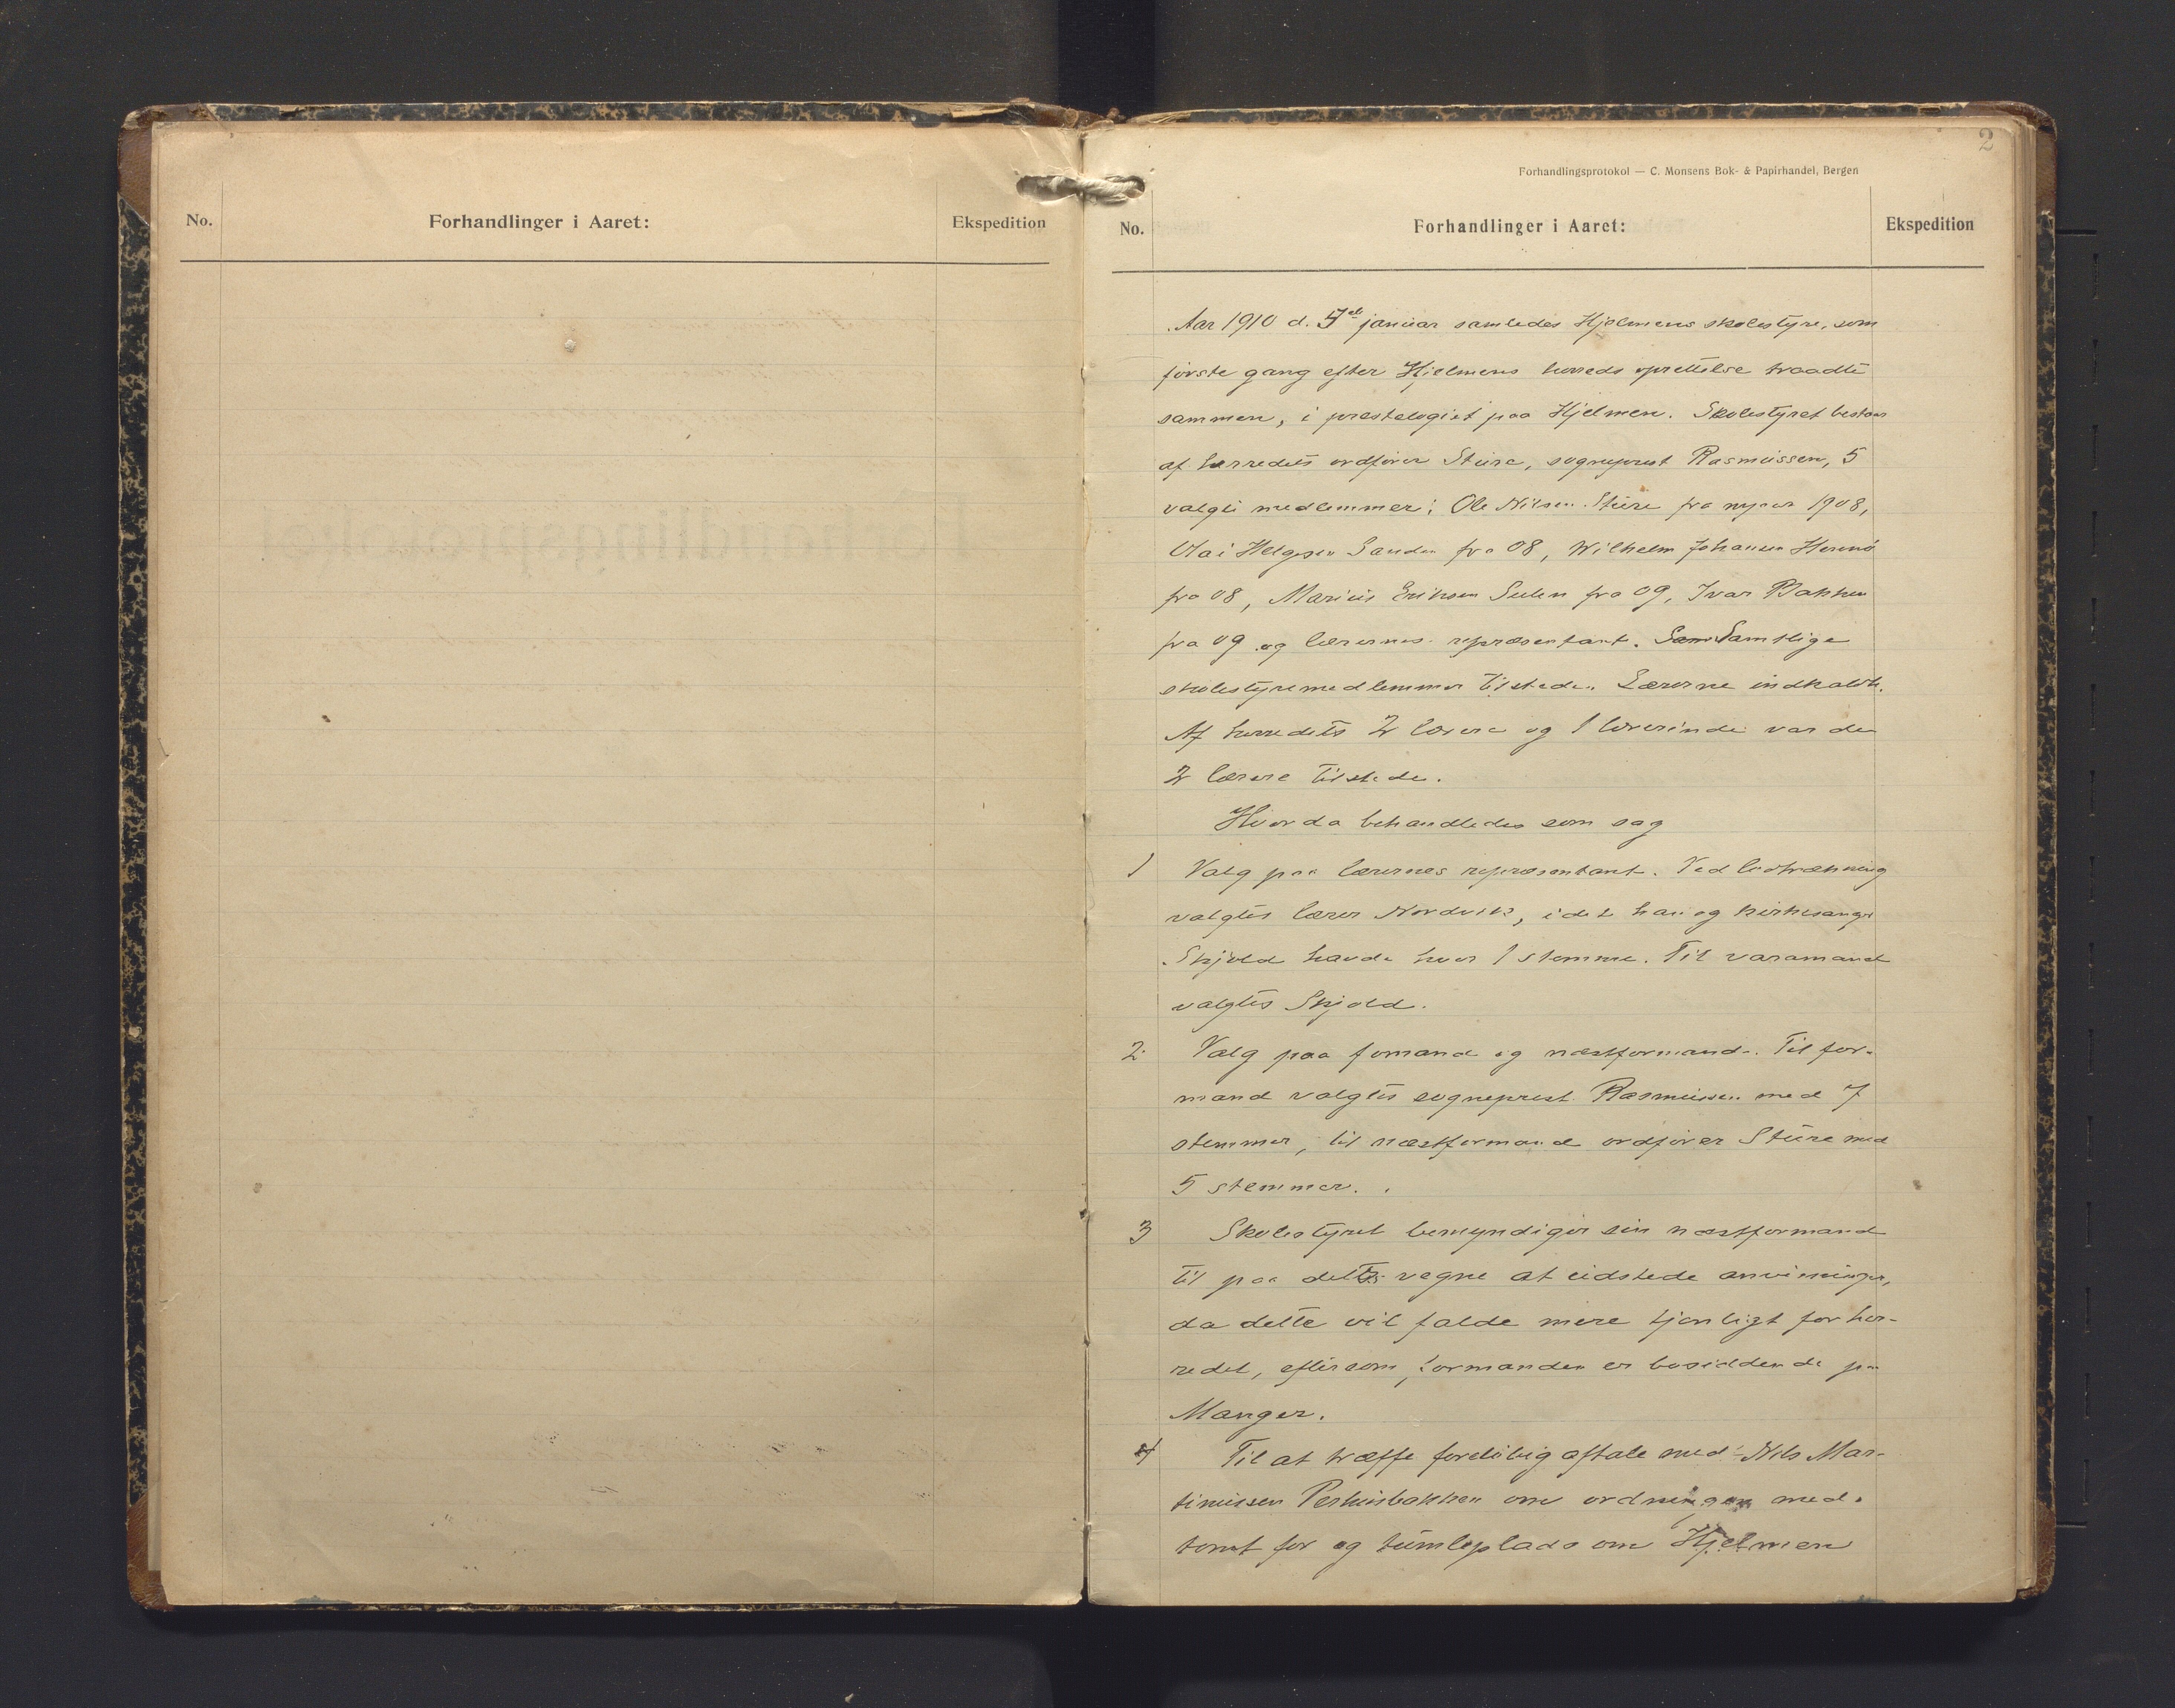 No.
Forhandlinger i Aaret:
Ekspedition
2
Forhandlingsprotokol — C. Monsens Bok- & Papirhandel, Bergen
No.
Forhandlinger i Aaret:
Ekspedition
Aar 1910 d. 5te januar samledes Hjelmens skolestyre, som
første gang efter Hjelmens herreds oprettelse traadte
sammen, i prestelogiet paa Hjelmen. Skolestyret bestaar
af herredets ordfører Sture, sogneprest Rasmussen, 5
valgte medlemmer: Ole Nilsen Sture fra nyaar 1908,
Helgesen Sanden fra 08, Wilhelm Johansen Hernø
fra 08, Marius Eriksen Sulen fra 09, Ivar Bakken
fra 09 og lærernes repræsentant. Sam Samtlige
skolestyremedlemmer tilstede. Lærerne indkaldt.
Af herredets 2 lærere og 1 lærerinde var de
2 lærere tilstede.
Hvor da behandledes som sag
1 Valg paa lærernes repræsentant. Ved lodtrækning
valgtes lærer Nordvik, idet han og kirkesanger
Skjold havde hver 1 stemme. Til varamand
valgtes Skjold.
2 Valg paa formand og næstformand. Til for-
mand valgtes sogneprest Rasmussen med 7
stemmer, til næstformand ordfører Sture med
5 stemmer.
3 Skolestyret bemyndiger sin næstformand
til paa dets vegne at udstede anvisninger,
da dette vil falde mere tjenligt for her-
redet, eftersom formanden er bosiddende paa
Manger.
4 Til at træffe foreløbig aftale med Nils Mar-
tinussen om ordningen med
tomt for og tumleplads om Hjelmen